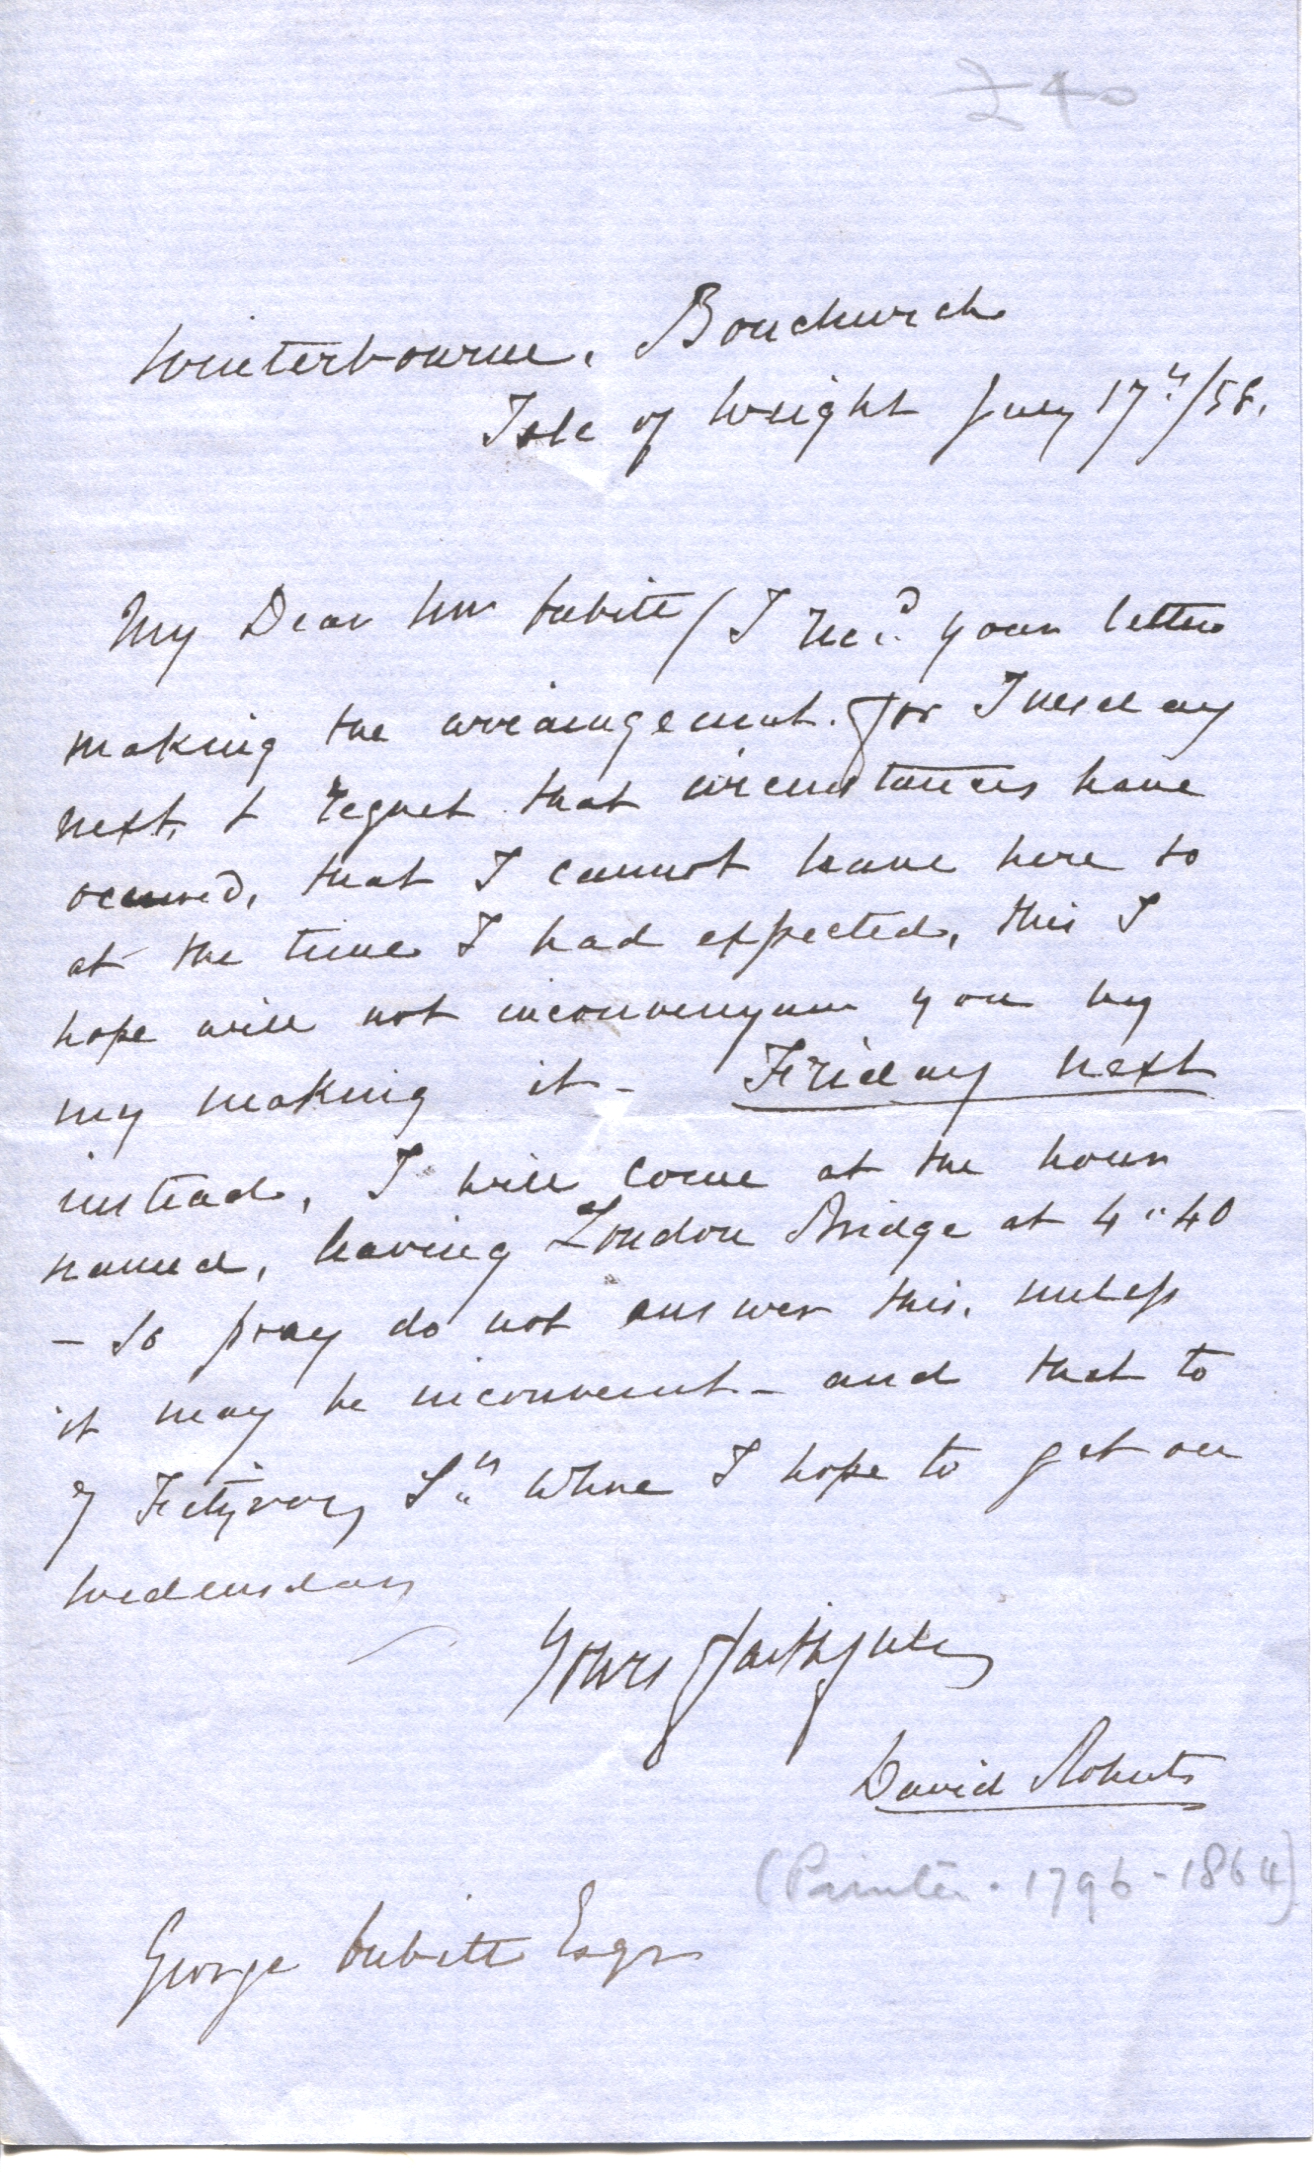 240
Winterbourne, Bonchurch
Isle of Wright July 17th/58.
My Dear Mr Cubitt / I Recd. your letter
making the arraingement for Tuesday
next, & regret that circumstances have
occurred, that I cannot leave here so
at the time I had expected, this I
hope will not you by
my making it - Friday next
instead, I will come at the hour
named, leaving London Bridge at 4"40
- So pray do not answer this, unless
it may be inconvenient - and that to
7 Fitzroy St. where I hope to get on
Wedensday
Yours faithfully
David Roberts
(Painter. 1796-1864)
George Cubitt Esqr